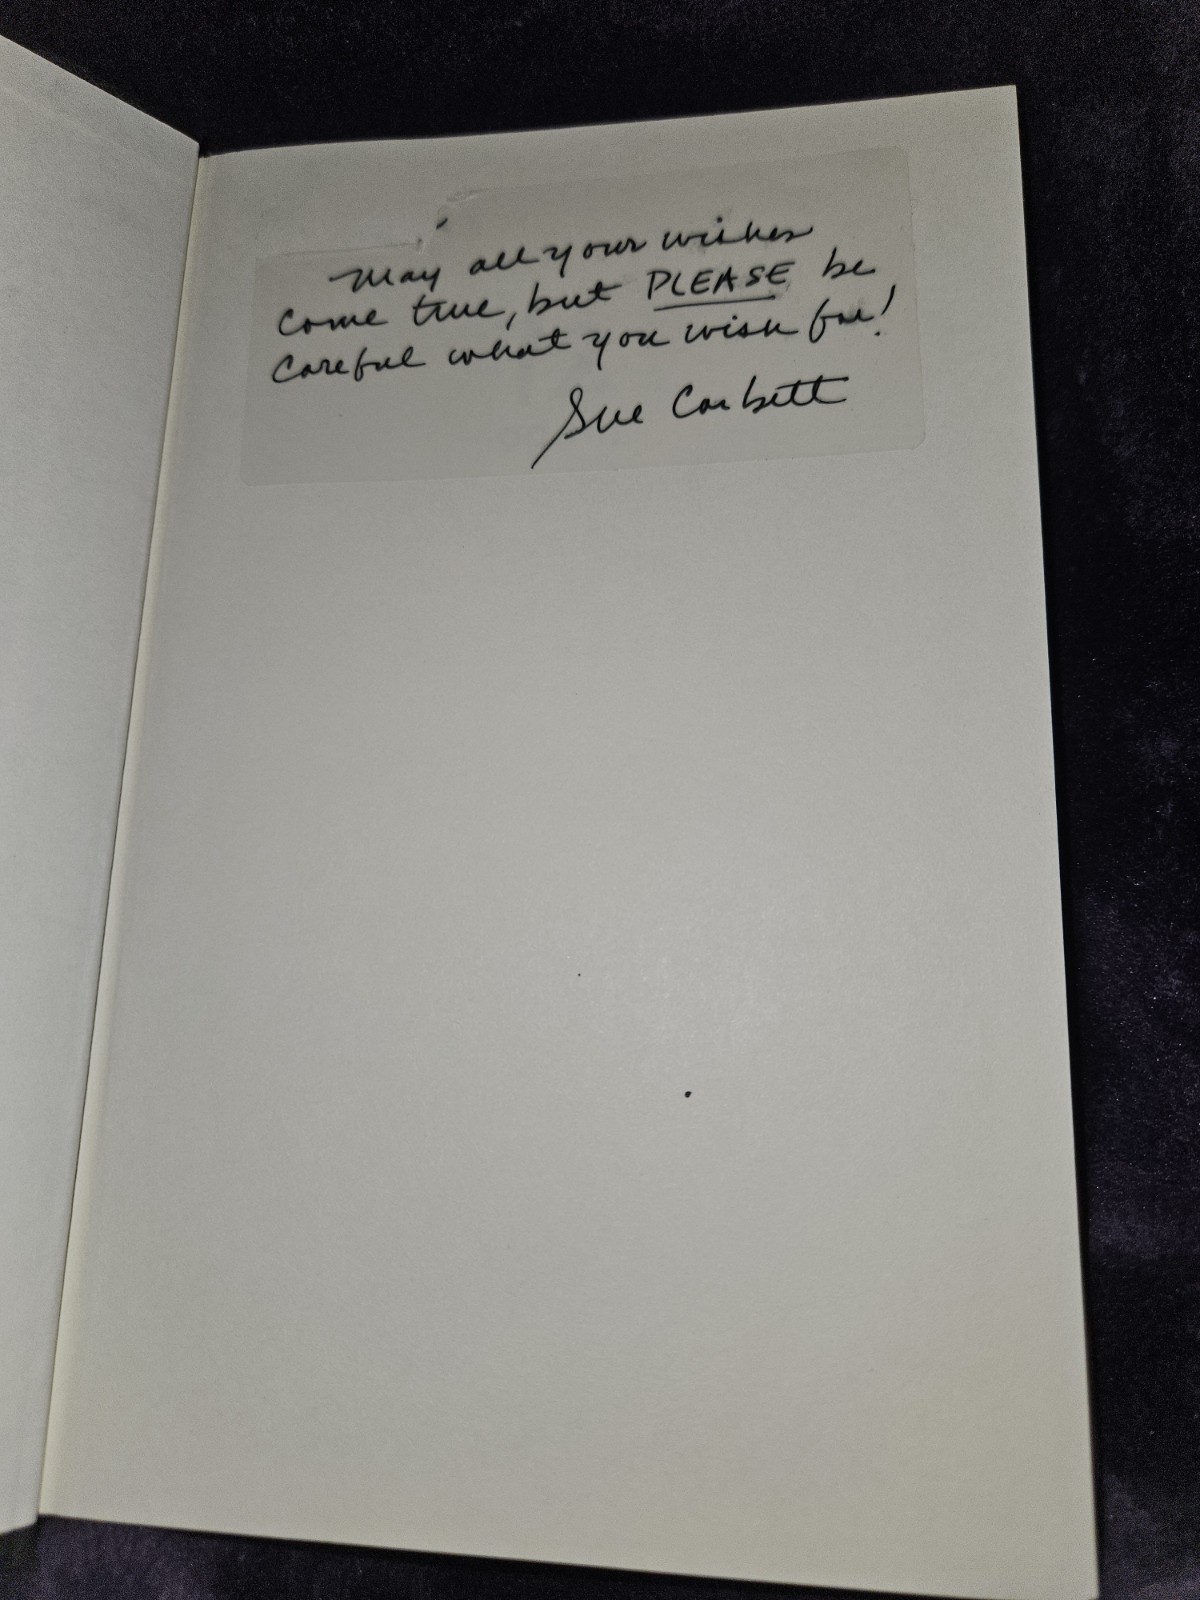 May all your wishes
come true, but PLEASE be
careful what you wish for!
Sue Corbett